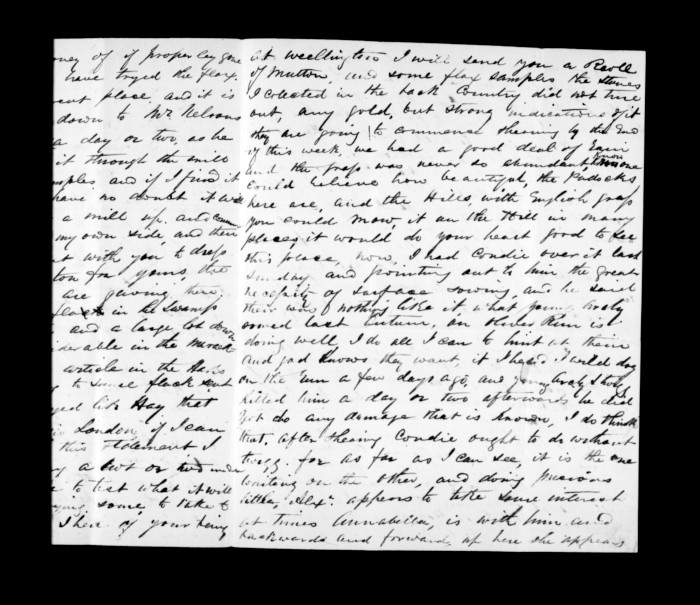 ney of if properley gone
have tryed the flax.
ent place, and it is
down to Mr Nelsons
a day or two, as he
it through the mill
mples, and if I find it
have no doubt it will
a mill up, and
my own side, and then
with you to dress
ton for yours, the
are paving there
in the Swamps
and a large lot down
iderable in the
article in the
to Some flack sent
like Hay that
London, if I can
this statement I
a cwt or two under
to test what it will
some, to take to
I here of your being
at wellington I will send you a
of Mutton, and some flax samples the stones
I colected in the back Country did not turn
out, any gold, but strong indications of it
they are going to commence shearing by the End
of this week, we had a good deal of rain
and the grass was never so abundant, know one
could believe how beautiful, the Padocks
here are, and the Hills, with English grass
you could mow, it on the Hill in many
places it would do your heart good to see
this place, now, I had Condie over it last
Sunday and pointing out to him the great
necessity of surface sowing, and he said
their was nothing like it, what young
sowed last Autum, on Run is
doing well, I do all I can to hint at them
and god knows they want, it I heard I wild dog
on the Run a few days ago, and young
killed him a day or two afterwards he did
not do any damage that is known, I do think
that, after shearing Condie ought to do without
for as far as I can see, it is the one
waiting on the other, and doing
little, Alxr. appears to take some interest
at times Annabella, is with him and
backwards and forwards up here she appears